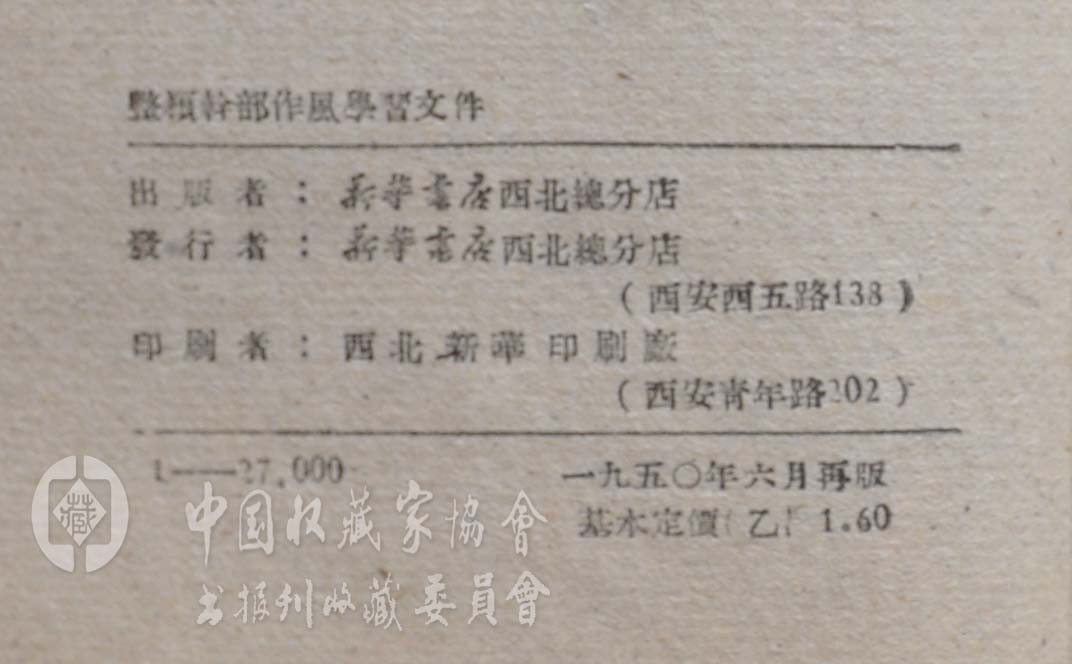 整頓幹部作風學習文件
出版者：新華書店西北總分店
發行者：新華書店西北總分店
（西安西五路138）
印刷者：西北新華印刷廠
（西安青年路202）
1——27,000
一九五〇年六月再版
基本定價（乙）1.60
藏
中国收藏家協會
书报刊收藏委員會